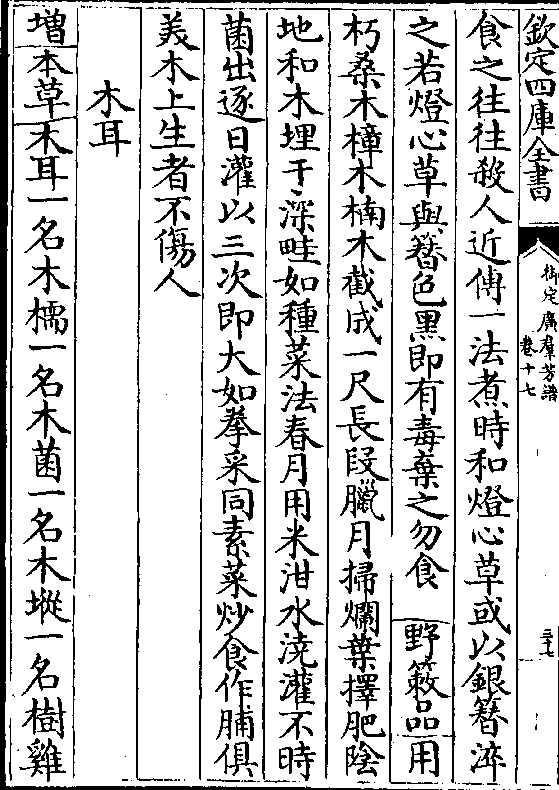 欽定四庫全書
御定廣羣芳譜
卷十七
三十七
食之往往殺人近傳一法煮時和燈心草或以銀簪淬
之若燈心草與簪色黑即有毒棄之勿食 野簌品用
朽桑木樟木楠木截成一尺長段臘月掃爛葉擇肥陰
地和木埋于深畦如種菜法春月用米泔水澆灌不時
菌出逐日灌以三次即大如拳采同素菜炒食作脯俱
美木上生者不傷人
木耳
增本草木耳一名木檽一名木菌一名木㙡一名樹雞